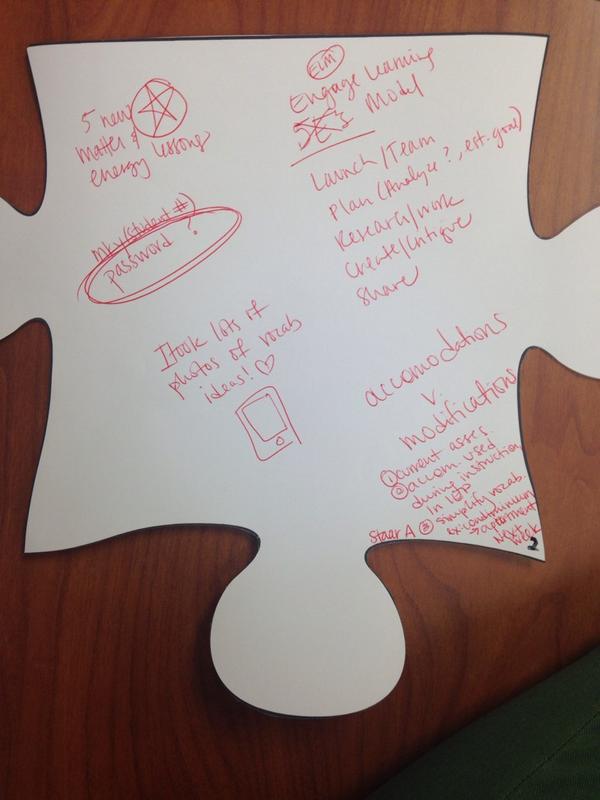 5 new
matter &
energy lessons
mkv/student #)
password ?
I took lots of
photos of vocab
ideas! ♡
ELM
Engage Learning
5E's Model
Launch/Team
Plan (Analyze ?, est. goal)
Research/work
Create/Critique
Share
accomodations
v.
modifications
① current asses.
② accom. used
during instruction
in IEP
Staar A ③ simplify vocab.
ex:
→ apartment
Next
Week
2